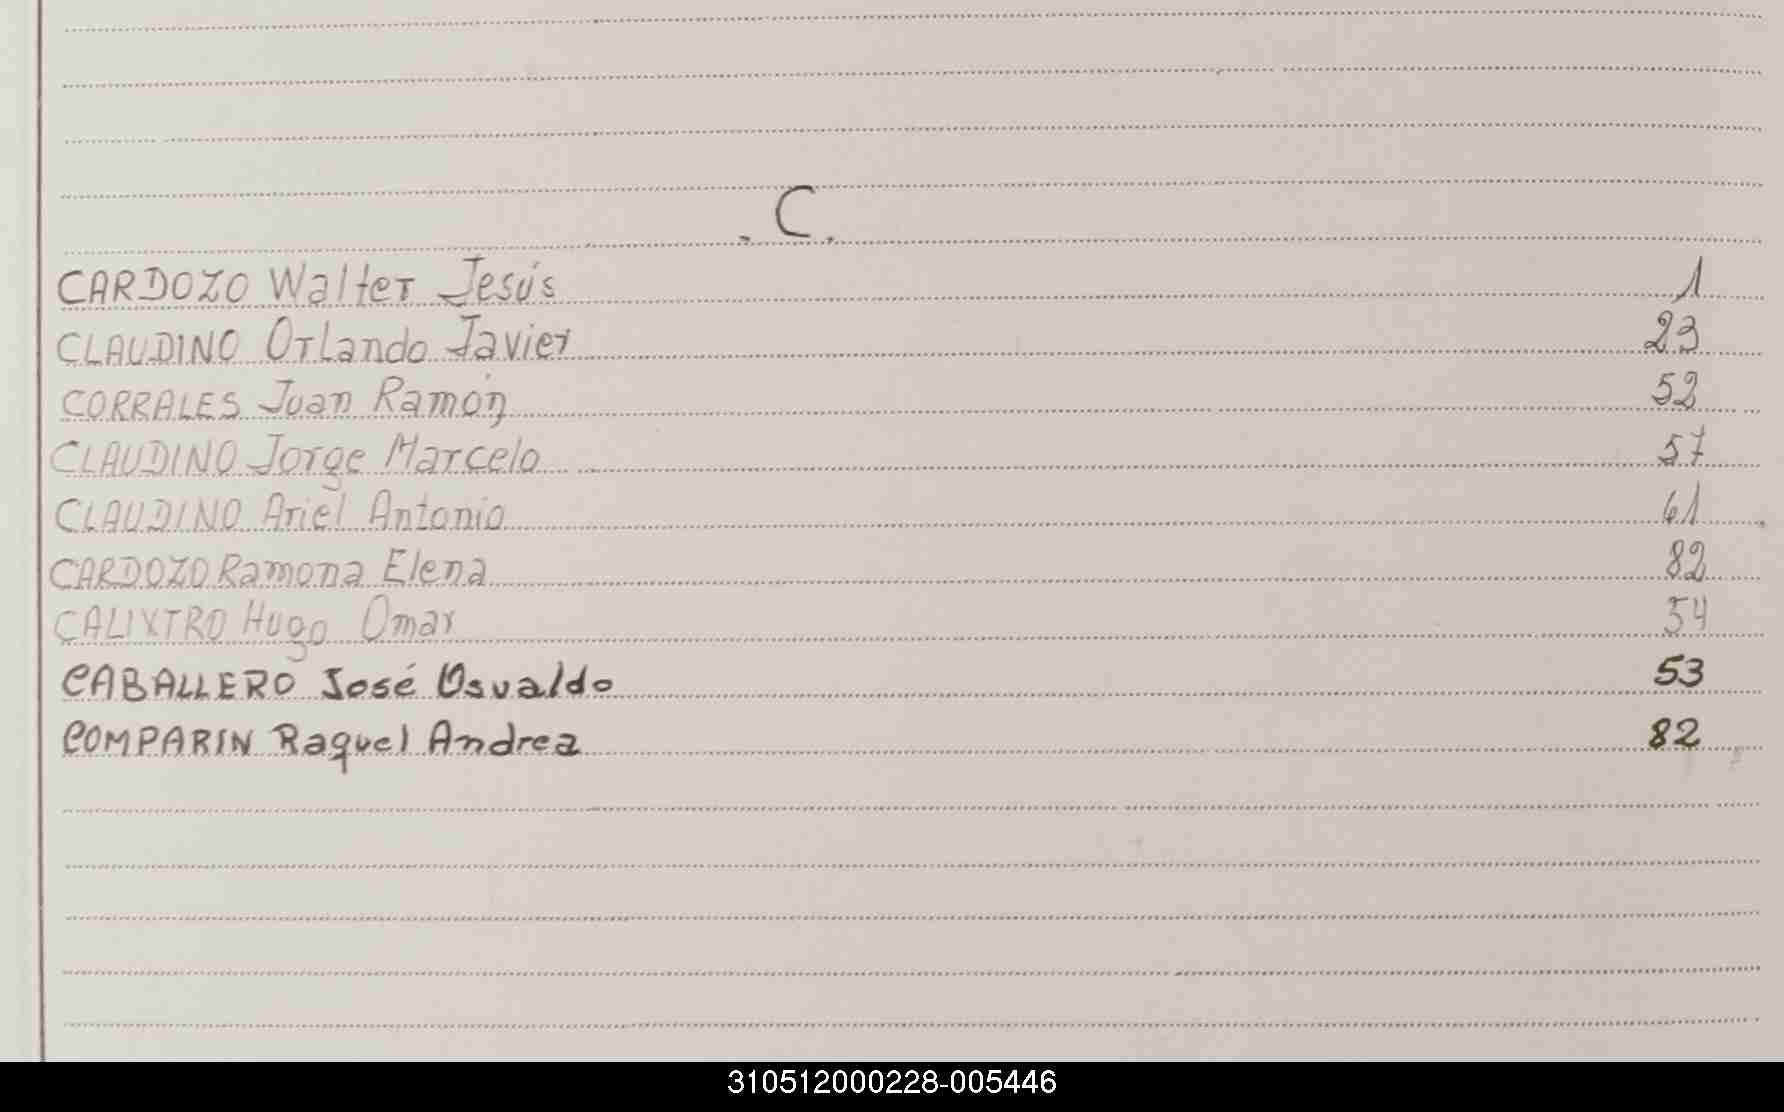 .C.
CARDOZO Walter Jesús 1
CLAUDINO Orlando Javier 23
CORRALES Juan Ramón 52
CLAUDINO Jorge Marcelo 57
CLAUDINO Ariel Antonio 61
CARDOZO Ramona Elena 82
CALIXTRO Hugo Omar 54
CABALLERO José Osvaldo 53
COMPARIN Raquel Andrea 82
310512000228-005446